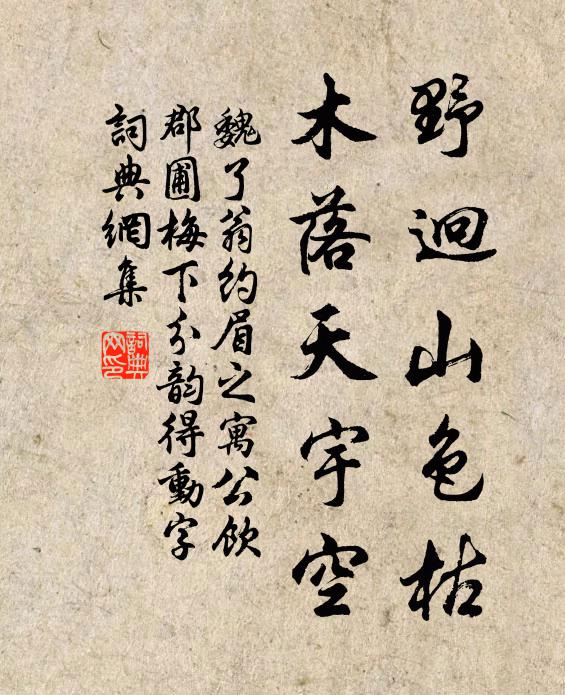 野迥山色枯
木落天宇空
魏了翁約眉之寓公飲
郡圃梅下分韵得動字
詞典網集
詞典网印